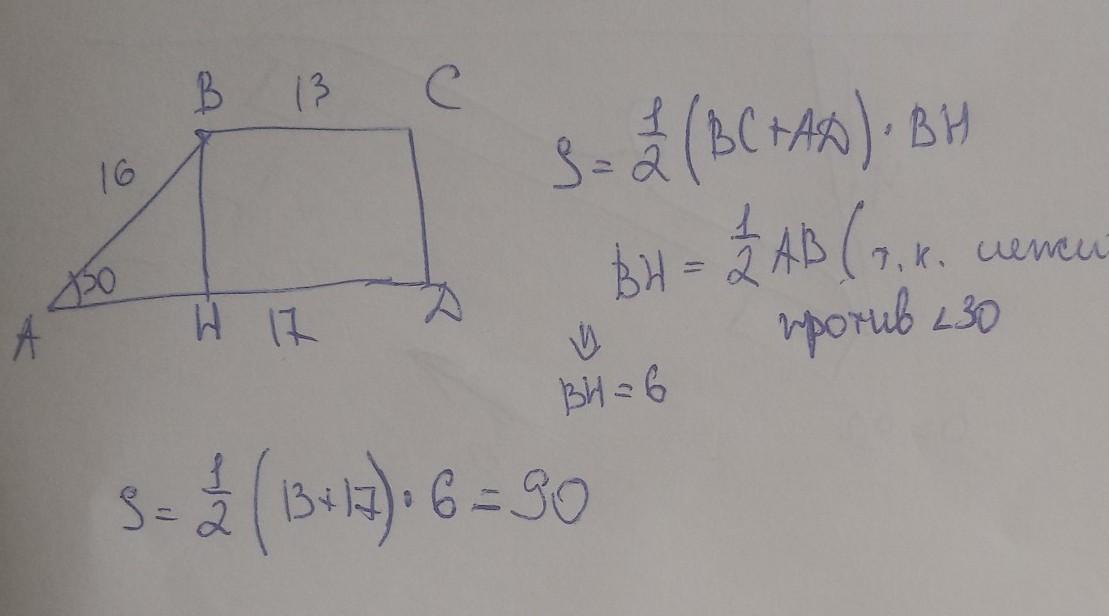 B 13 C
16
30
A H 17 D
S = 1/2 (BC+AD) · BH
BH = 1/2 AB (т.к. лежи
против ∠30
⇓
BH = 6
S = 1/2 (13+17) · 6 = 90